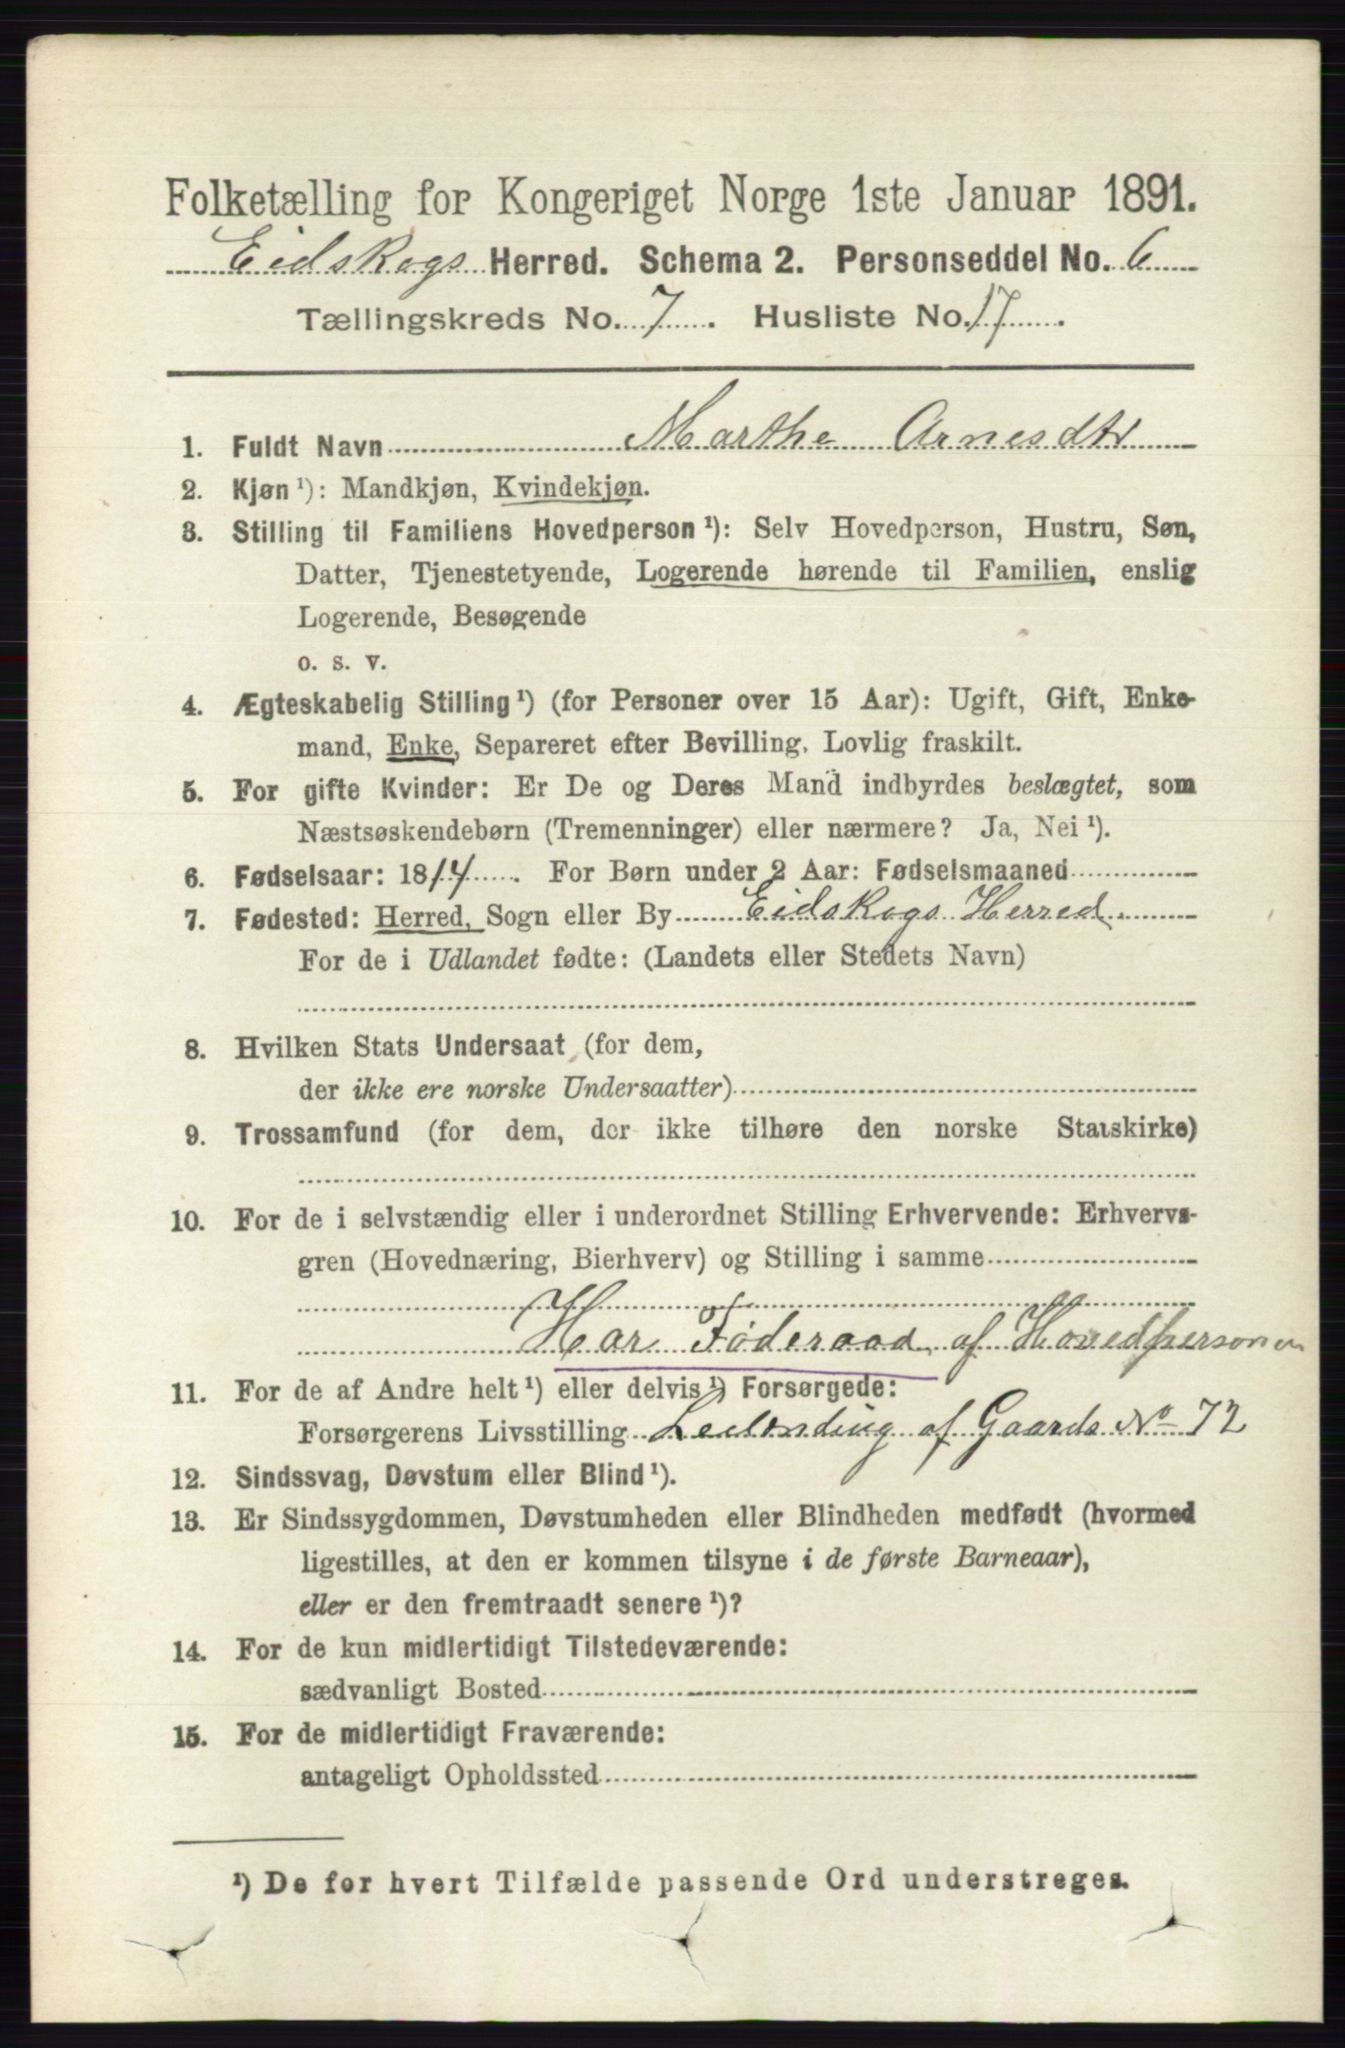 Folketælling for Kongeriget Norge 1ste Januar 1891.
Eidskogs Herred. Schema 2. Personseddel No. 6
Tællingskreds No. 7. Husliste No. 17.
1. Fuldt Navn Marthe Arnesdtr
2. Kjøn ¹): Mandkjøn, Kvindekjøn.
3. Stilling til Familiens Hovedperson ¹): Selv Hovedperson, Hustru, Søn,
Datter, Tjenestetyende, Logerende hørende til Familien, enslig
Logerende, Besøgende
o. s. v.
4. Ægteskabelig Stilling ¹) (for Personer over 15 Aar): Ugift, Gift, Enke-
mand, Enke, Separeret efter Bevilling, Lovlig fraskilt.
5. For gifte Kvinder: Er De og Deres Mand indbyrdes beslægtet, som
Næstsøskendebørn (Tremenninger) eller nærmere? Ja, Nei ¹).
6. Fødselsaar: 1814. For Børn under 2 Aar: Fødselsmaaned
7. Fødested: Herred, Sogn eller By Eidskogs Herred.
For de i Udlandet fødte: (Landets eller Stedets Navn)
8. Hvilken Stats Undersaat (for dem,
der ikke ere norske Undersaatter)
9. Trossamfund (for dem, der ikke tilhøre den norske Statskirke)
10. For de i selvstændig eller i underordnet Stilling Erhvervende: Erhvervs-
gren (Hovednæring, Bierhverv) og Stilling i samme
Har Föderaad af Hovedpersonen
11. For de af Andre helt ¹) eller delvis ¹) Forsørgede:
Forsørgerens Livsstilling Leilending af Gaards No 72
12. Sindssvag, Døvstum eller Blind ¹).
13. Er Sindssygdommen, Døvstumheden eller Blindheden medfødt (hvormed
ligestilles, at den er kommen tilsyne i de første Barneaar),
eller er den fremtraadt senere ¹)?
14. For de kun midlertidigt Tilstedeværende:
sædvanligt Bosted
15. For de midlertidigt Fraværende:
antageligt Opholdssted
¹) De for hvert Tilfælde passende Ord understreges.